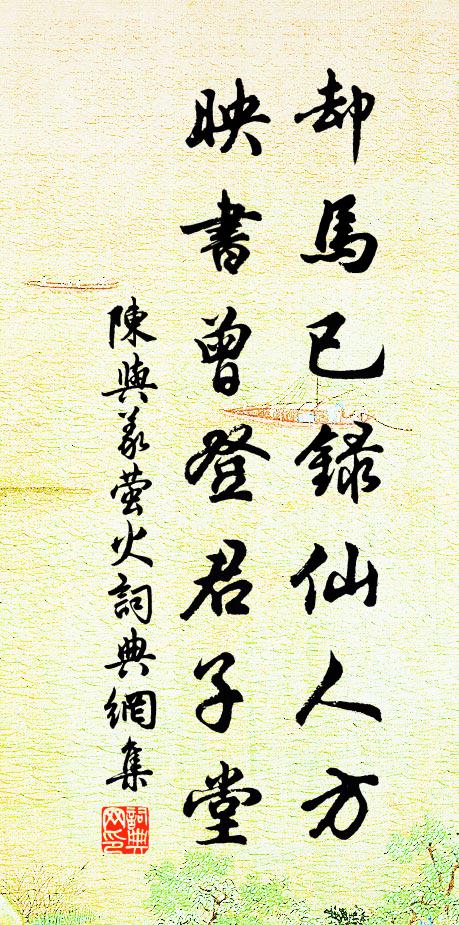 却馬已録仙人方
映書曽登君子堂
陳與義萤火詞典網集
詞典網印